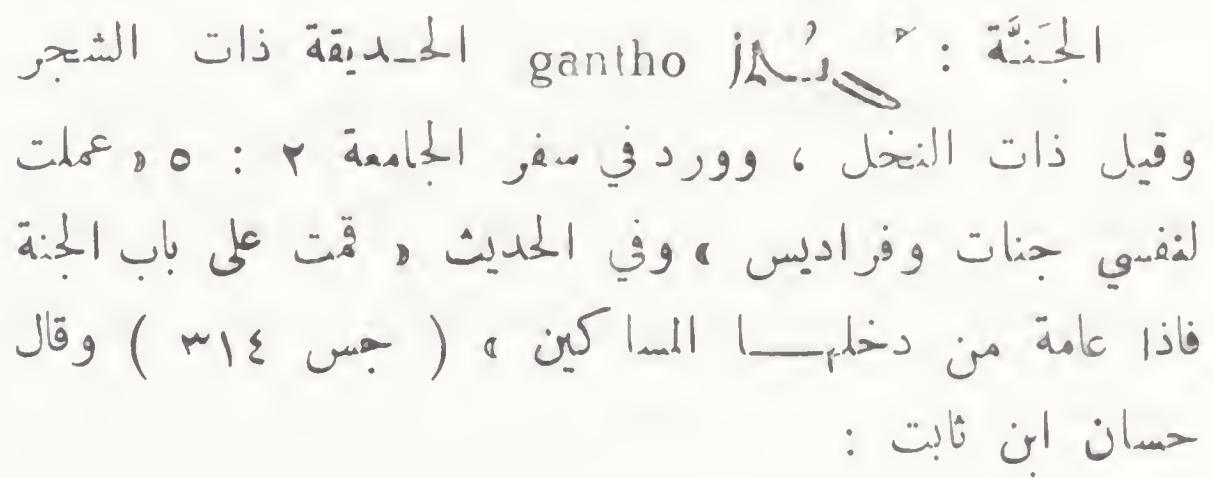 الجَنَّة : ܓܰܢܬܳܐ gantho الحديقة ذات الشجر
وقيل ذات النخل ، وورد في سفر الجامعة ٢ : ٥ « عملت
لنفسي جنات وفراديس » وفي الحديث « قمت على باب الجنة
فاذا عامة من دخلها المساكين » ( جس ٣١٤ ) وقال
حسان ابن ثابت :